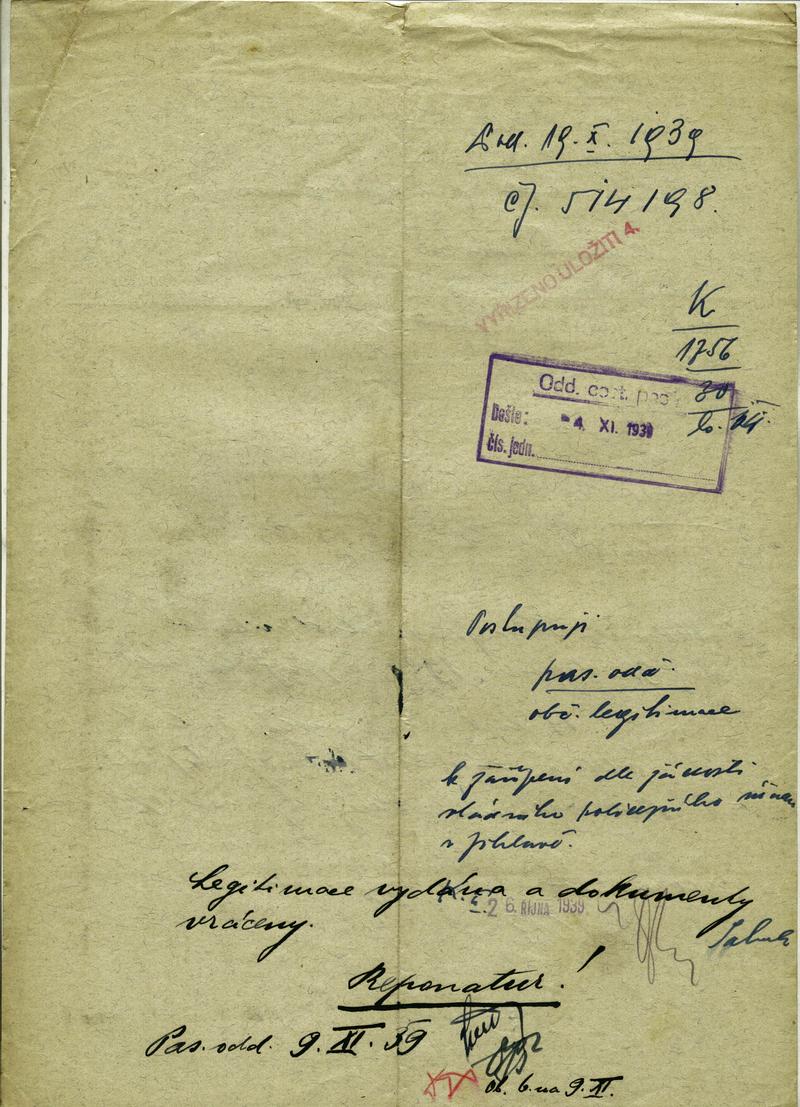 Pod. 19. X. 1939
čj. 514198.
VYŘÍZENO ULOŽITI 4.
K
1756
30
Odd. cest. pasů
Došlo: -4. XI. 1939
čís. jedn.
Postupuji
pas. odd.
obč. legitimace
k zařízení dle žádosti
vládního policejního
v Jihlavě.
Legitimace vydána a dokumenty
vráceny.
26. ŘÍJNA 1939
Reponatur!
Pas. odd. 9. XI. 39
9. XI.